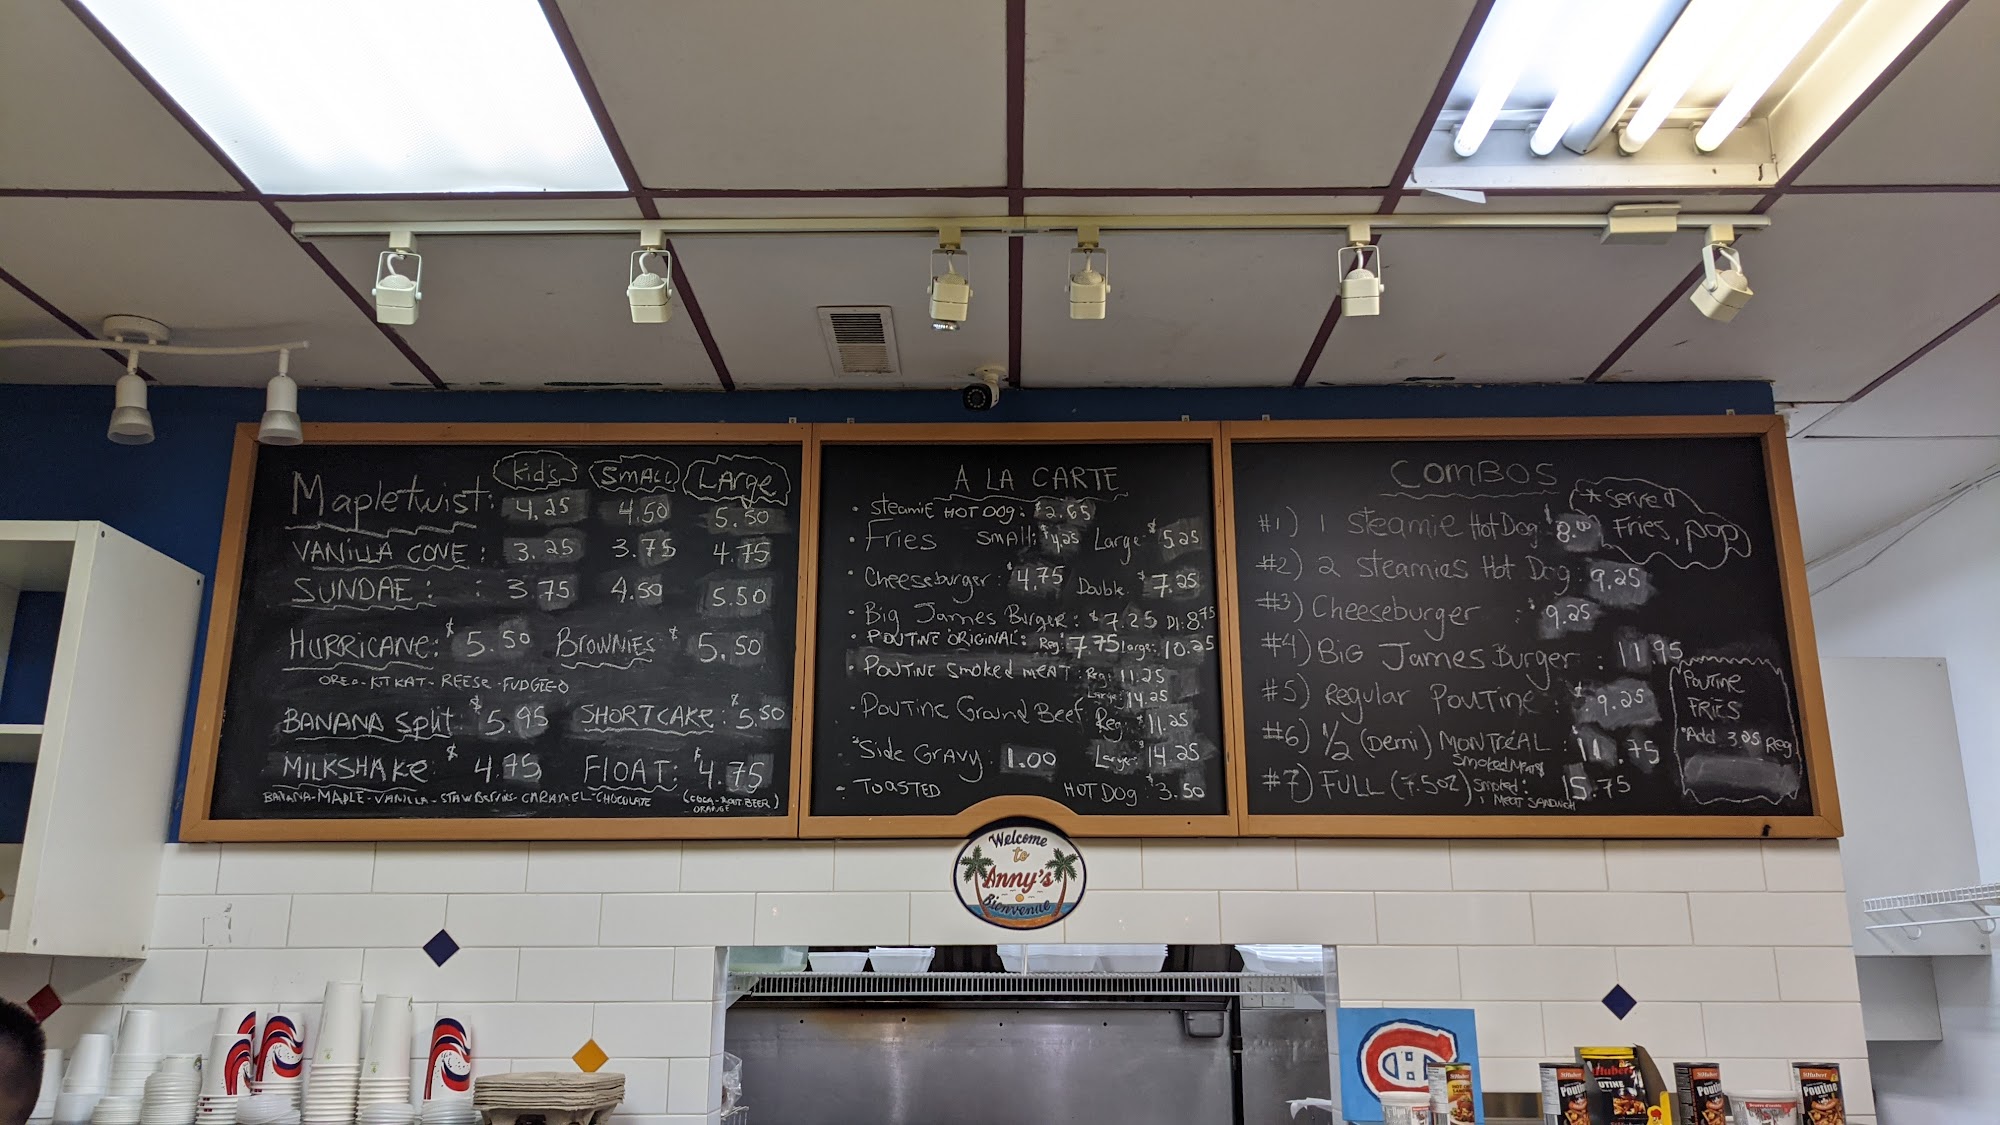 Kid's Small Large
Mapletwist: 4.25 4.50 5.50
VANILLA CONE: 3.25 3.75 4.75
SUNDAE: : 3.75 4.50 5.50
HURRICANE: $5.50 BROWNIES: $5.50
OREO-KITKAT-REESE-FUDGEE-O
BANANA Split: $5.95 SHORTCAKE: $5.50
MILKSHAKE $4.75 FLOAT: $4.75
BANANA-MAPLE-VANILLA-STAWBERRIES-CARAMEL-CHOCOLATE (COCA-ROOT BEER)
ORANGE
A LA CARTE
• Steamie HOT DOG: $2.65
• Fries Small: $4.25 Large: $5.25
• Cheeseburger: $4.75 Double: $7.25
• Big James Burger: $7.25 Dl: 8.75
• POUTINE ORIGINAL: Reg: $7.75 large: 10.25
• POUTINE Smoked MEAT: Reg: 11.25
Large: 14.25
• Poutine Ground Beef Reg: $11.25
Side Gravy: 1.00 Large: $14.25
• TOASTED HOT DOG: $3.50
COMBOS
*Served
Fries, pop
#1) 1 Steamie Hot Dog: $8.00
#2) 2 Steamies Hot Dog: 9.25
#3) Cheeseburger : $9.25
#4) BIG James Burger : 11.95
#5) Regular Poutine : $9.25
#6) 1/2 (Demi) MONTRÉAL : $11.75
Smoked Meat
#7) FULL (7.5oz) Smoked: 15.75
MEAT SANDWICH
POUTINE
FRIES
*Add 3.25 Reg
Welcome
to
Anny's
Bienvenue
CH
StHubert
StHubert
Poutine
StHubert
UTINE
StHubert
Poutine
StHubert
Poutine